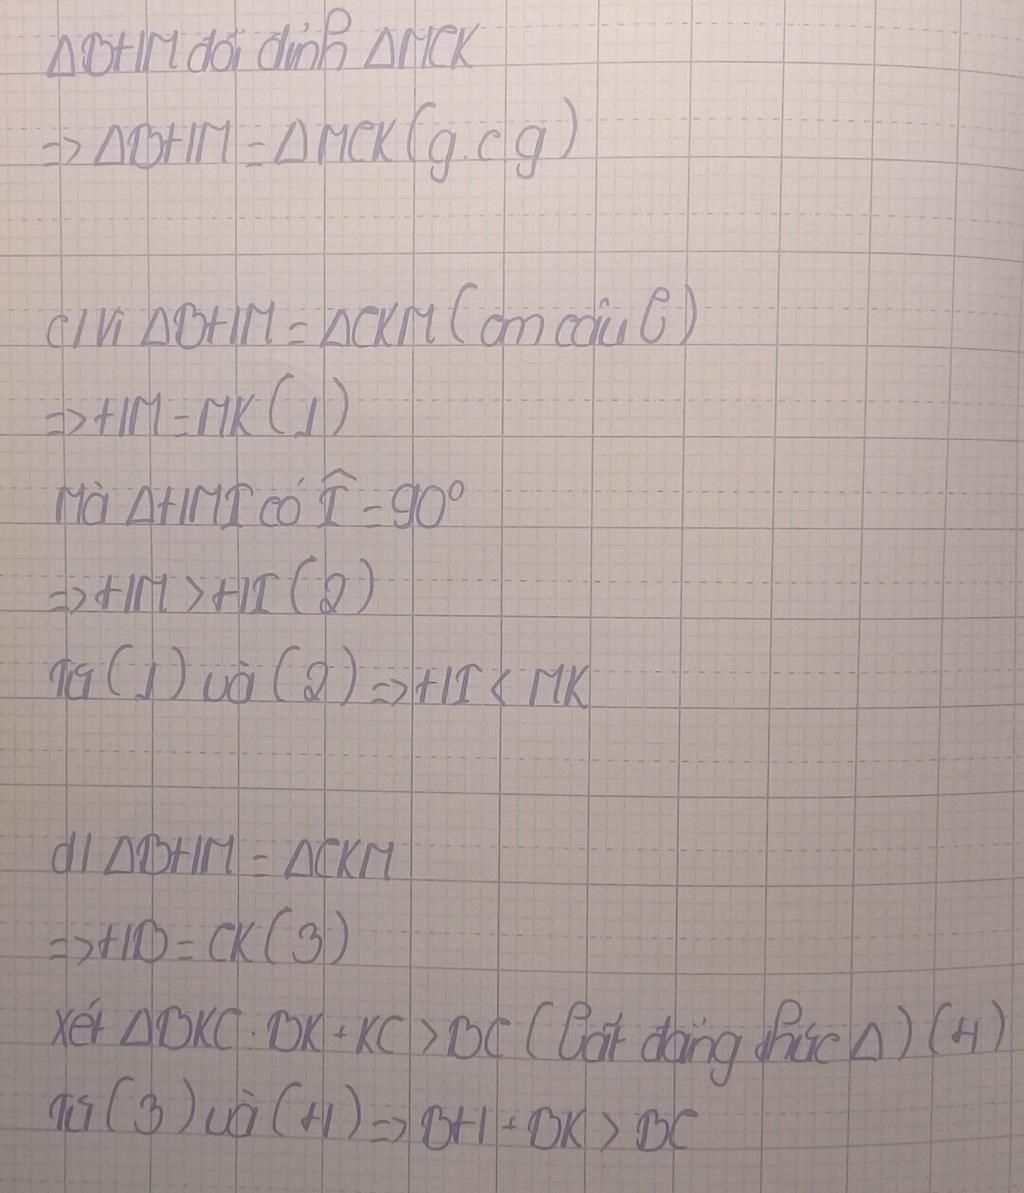 ΔBHM đối đỉnh ΔMCK
=> ΔBHM = ΔMCK (g.c.g)
c/ Vì ΔBHM = ΔCKM (cm câu b)
=> HM = MK (1)
Mà ΔHMI có Î = 90°
=> HM > HI (2)
Từ (1) và (2) => HI < MK
d/ ΔBHM = ΔCKM
=> HB = CK (3)
Xét ΔBKC: BK + KC > BC (Bất đẳng thức Δ) (4)
Từ (3) và (4) => BH + BK > BC